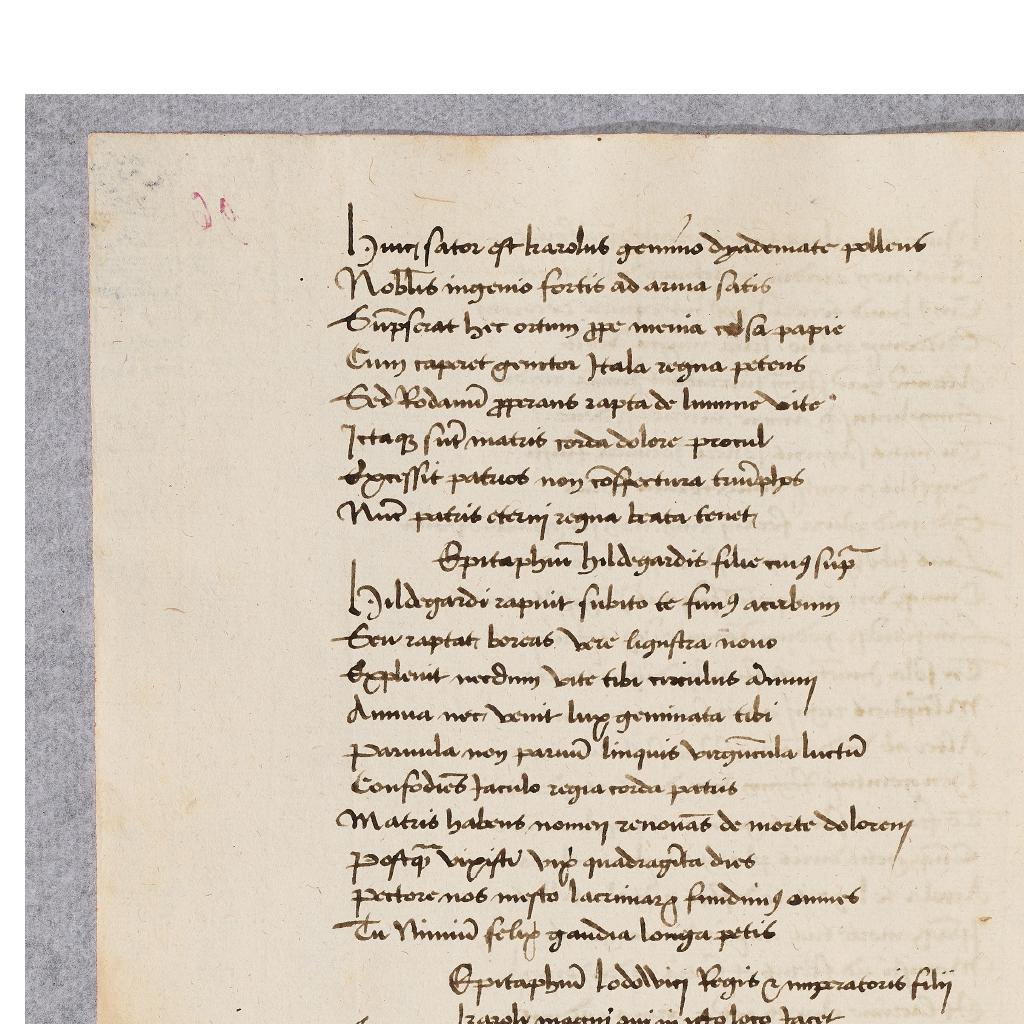 Huic sator est karolus gemino dyademate pollens
Nobl̅is ingenio fortis ad arma satis
Sup̅serat hec ortum ꝓpe menia celsa papie
Cum caperet genitor Itala regna petens
Sed Rodanu̅ ꝓperans rapta de limine vite
Ictaqꝫ su̅t matris corda dolore procul
Excessit patrios non co̅spectura triu̅phos
Nu̅c patris eterni regna beata tenet
Epitaphiu̅ hildegardis filie cuiꝰ sup̅
Hildegardi rapuit subito te funꝰ acerbum
Seu raptat boreas vere ligustra nouo
Expleuit necdum vite tibi circulus a̅num
Annua nec venit lux geminata tibi
Paruula non paruu̅ linquis virgu̅cula luctu̅
Confodie̅s Jaculo regia corda patris
Matris habens nomen renoua̅s de morte dolorem
Postqꝫ vixisti vix quadragi̅ta dies
Pectore nos mesto lacrimaꝝ fundimꝰ omnes
Tu Nimiu̅ felix gaudia longa petis
Epitaphiu̅ lodowici Regis & imperatoris filij
karoli magni qui in isto loco Jacet